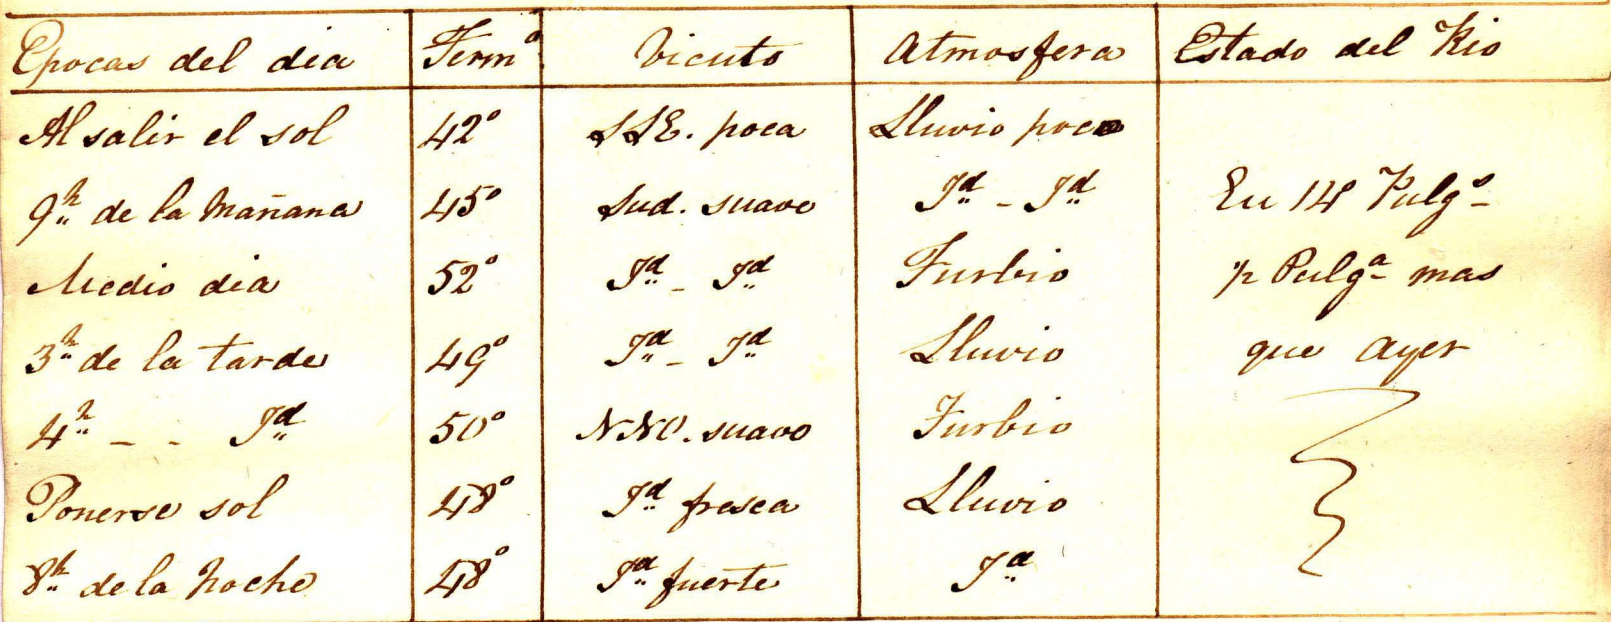 Epocas del dia Termº Viento Atmosfera Estado del Rio
Al salir el sol 42° SSE. poca Lluvio poco
9h de la Mañana 45° Sud. suave Id - Id En 14 Pulgs
Medio dia 52° Id - Id Turbio ½ Pulga mas
3h de la tarde 49° Id - Id Lluvio que Ayer
4h - - Id 50° NNO. suave Turbio
Ponerse sol 48° Id fresca Lluvio
8h de la Noche 48° Id fuerte Id